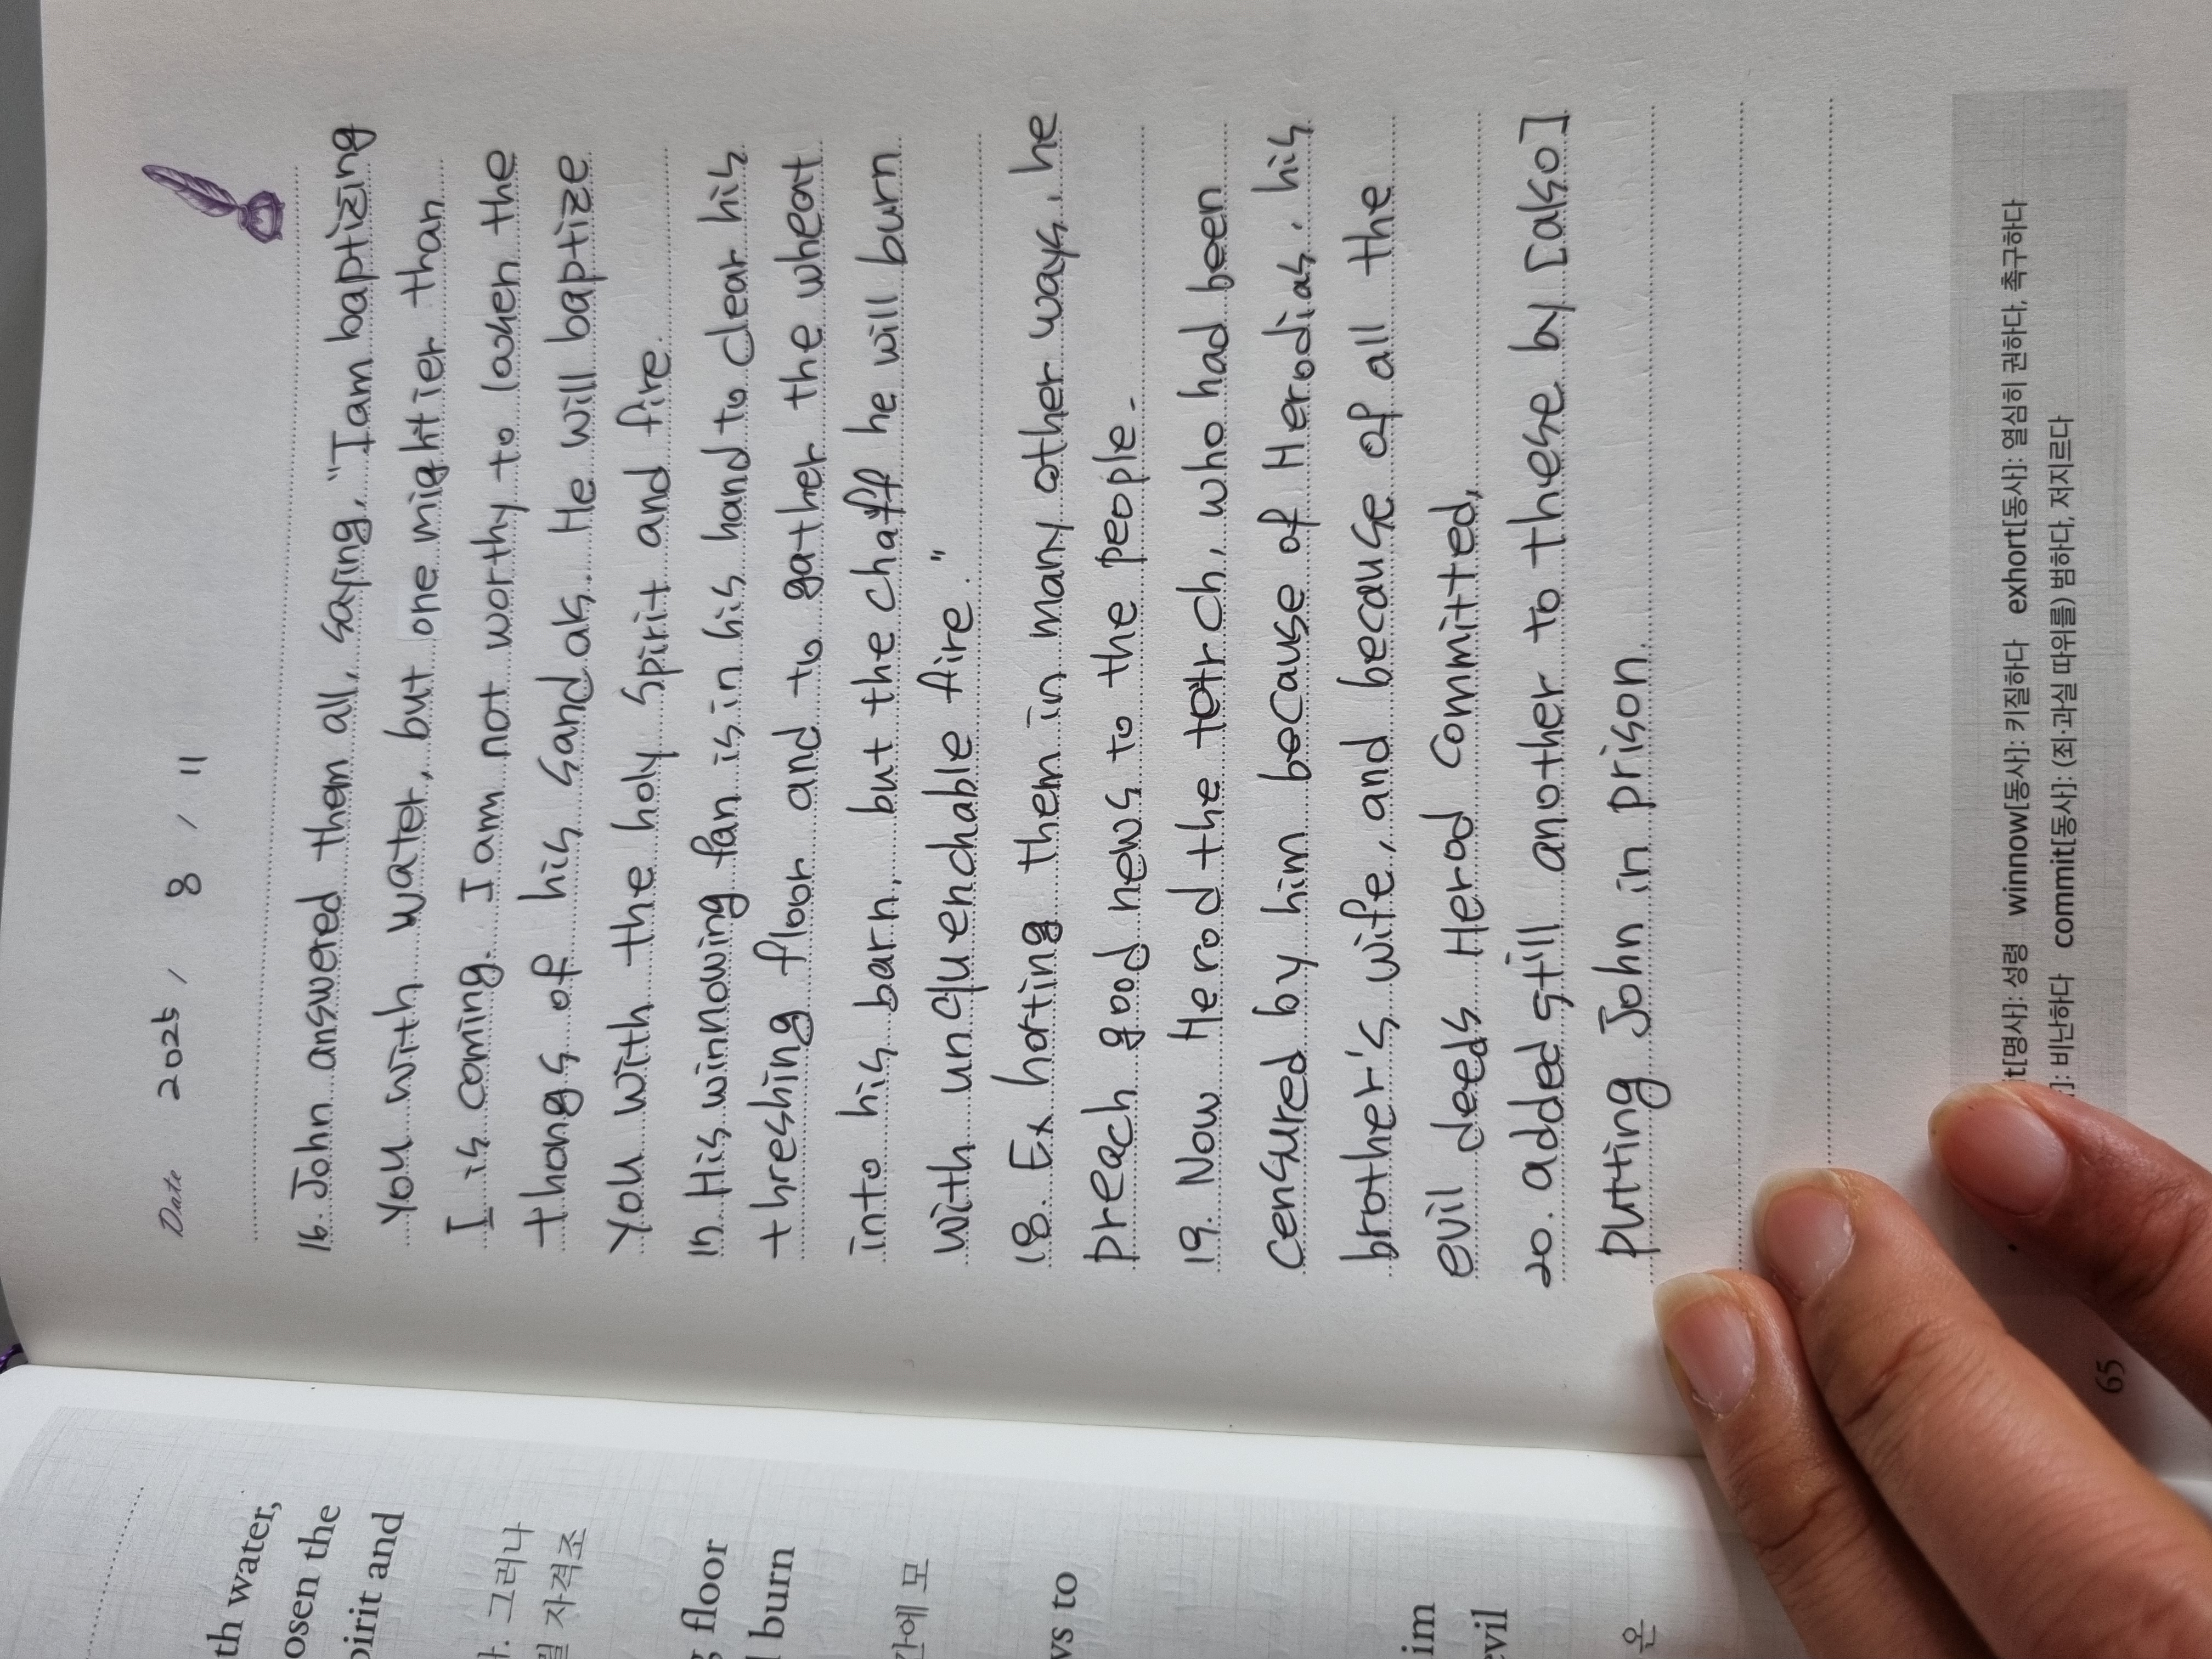 Date 2025 / 8 / 11
16. John answered them all, saying, "I am baptizing
you with water, but one mightier than
I is coming. I am not worthy to loosen the
thongs of his sandals. He will baptize
you with the holy spirit and fire.
17 His winnowing fan is in his hand to clear his
threshing floor and to gather the wheat
into his barn, but the chaff he will burn
with unquenchable fire."
18. Exhorting them in many other ways, he
preach good news to the people.
19. Now Herod the tetrarch, who had been
censured by him because of Herodias, his
brother's wife, and because of all the
evil deeds Herod committed,
20. added still another to these by [also]
putting John in prison.
[명사]: 성령 winnow[동사]: 키질하다 exhort[동사]: 열심히 권하다, 촉구하다
비난하다 commit[동사]: (죄·과실 따위를) 범하다, 저지르다
65
th water,
osen the
pirit and
그러나
자격조
floor
burn
간에 모
ws to
im
evil
은